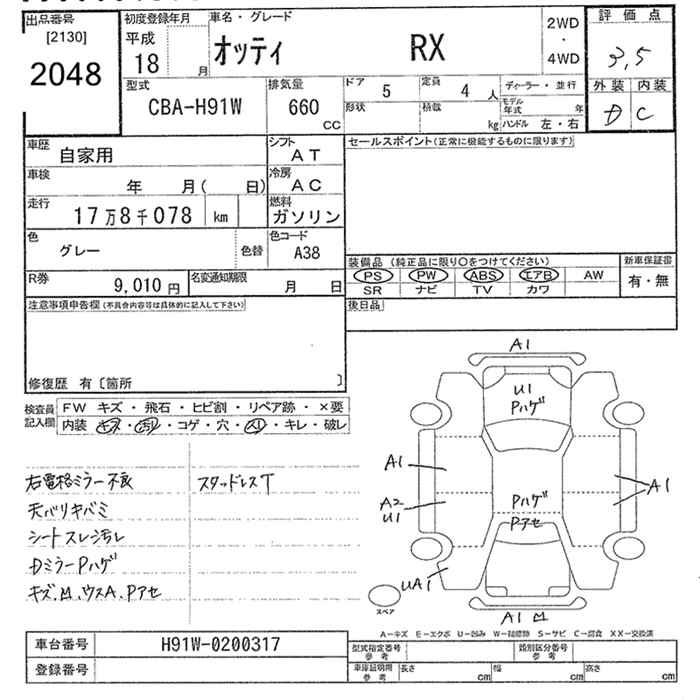 出品番号
[2130]
2048
初度登録年月
平成
18 月
車名・グレード
オッティ RX
2WD
・
4WD
評価点
3,5
外装 内装
D C
型式
CBA-H91W
排気量
660
CC
ドア 5
定員 4 人
形状
積載 kg
ディーラー・並行
モデル年式 年
ハンドル 左・右
車歴
自家用
シフト
AT
車検
年 月( 日)
冷房
AC
走行
17万8千078 km
燃料
ガソリン
色
グレー
色替
色コード
A38
R券
9,010 円
名変通知期限
月 日
セールスポイント(正常に機能するものに限ります)
装備品 (純正品に限り○をつけてください)
PS PW ABS エアB AW
SR ナビ TV カワ
新車保証書
有・無
後日品
注意事項申告欄(不具合内容等は具体的に記入して下さい)
修復歴 有〔箇所 〕
検査員記入欄
FW キズ・飛石・ヒビ割・リペア跡・×要
内装 キズ・汚レ・コゲ・穴・スリ・キレ・破レ
右電格ミラー不良 スタッドレスT
天バリキバミ
シートスレ汚レ
DミラーPハゲ
キズ、凹、ウスA、Pアセ
A1
U1
Pハゲ
A1
A2
U1
A1
Pハゲ
Pアセ
UA1
A1 凹
スペア
A-キズ E-エクボ U-凹み W-補修跡 S-サビ C-腐食 XX-交換済
車台番号 H91W-0200317
登録番号
型式指定番号
参考
類別区分番号
参考
車庫証明用
参考
長さ cm 幅 cm 高さ cm